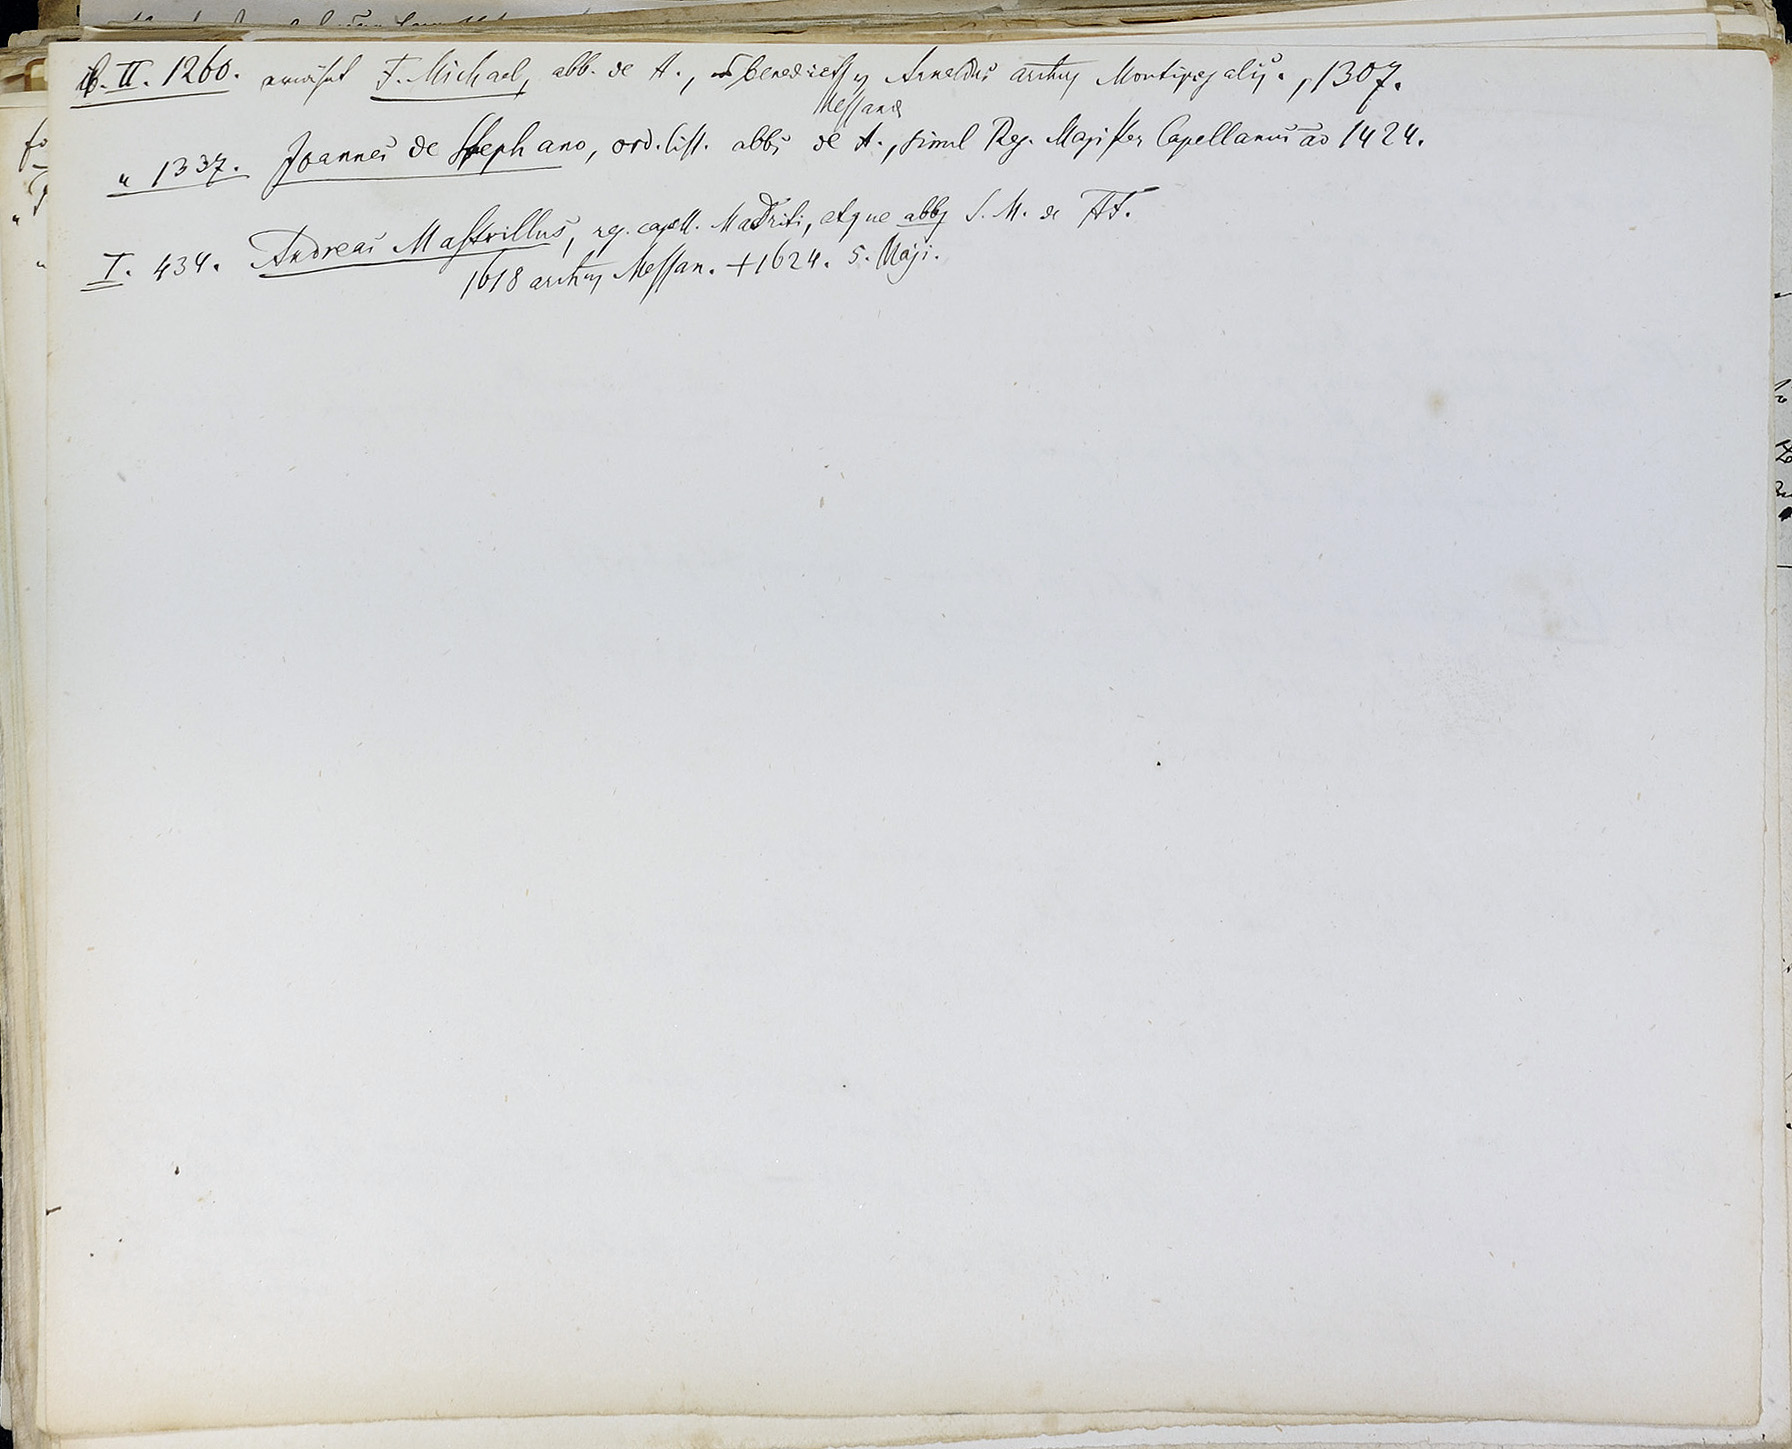 ib. II. 1260. erwähnt F. Michael, abb. de A., benedicts Arnaldus archus Montisregalis., 1307.
Messanæ
" 1337. Joannes de Stephano, ord. Cist. abbs de A., simul Reg. Magister Capellanus ao 1424.
I. 434. Andreas Mastrillus, reg. capell. Madriti, atque abbs S. M. de
1618 archus Messan. + 1624. 5. Maji.